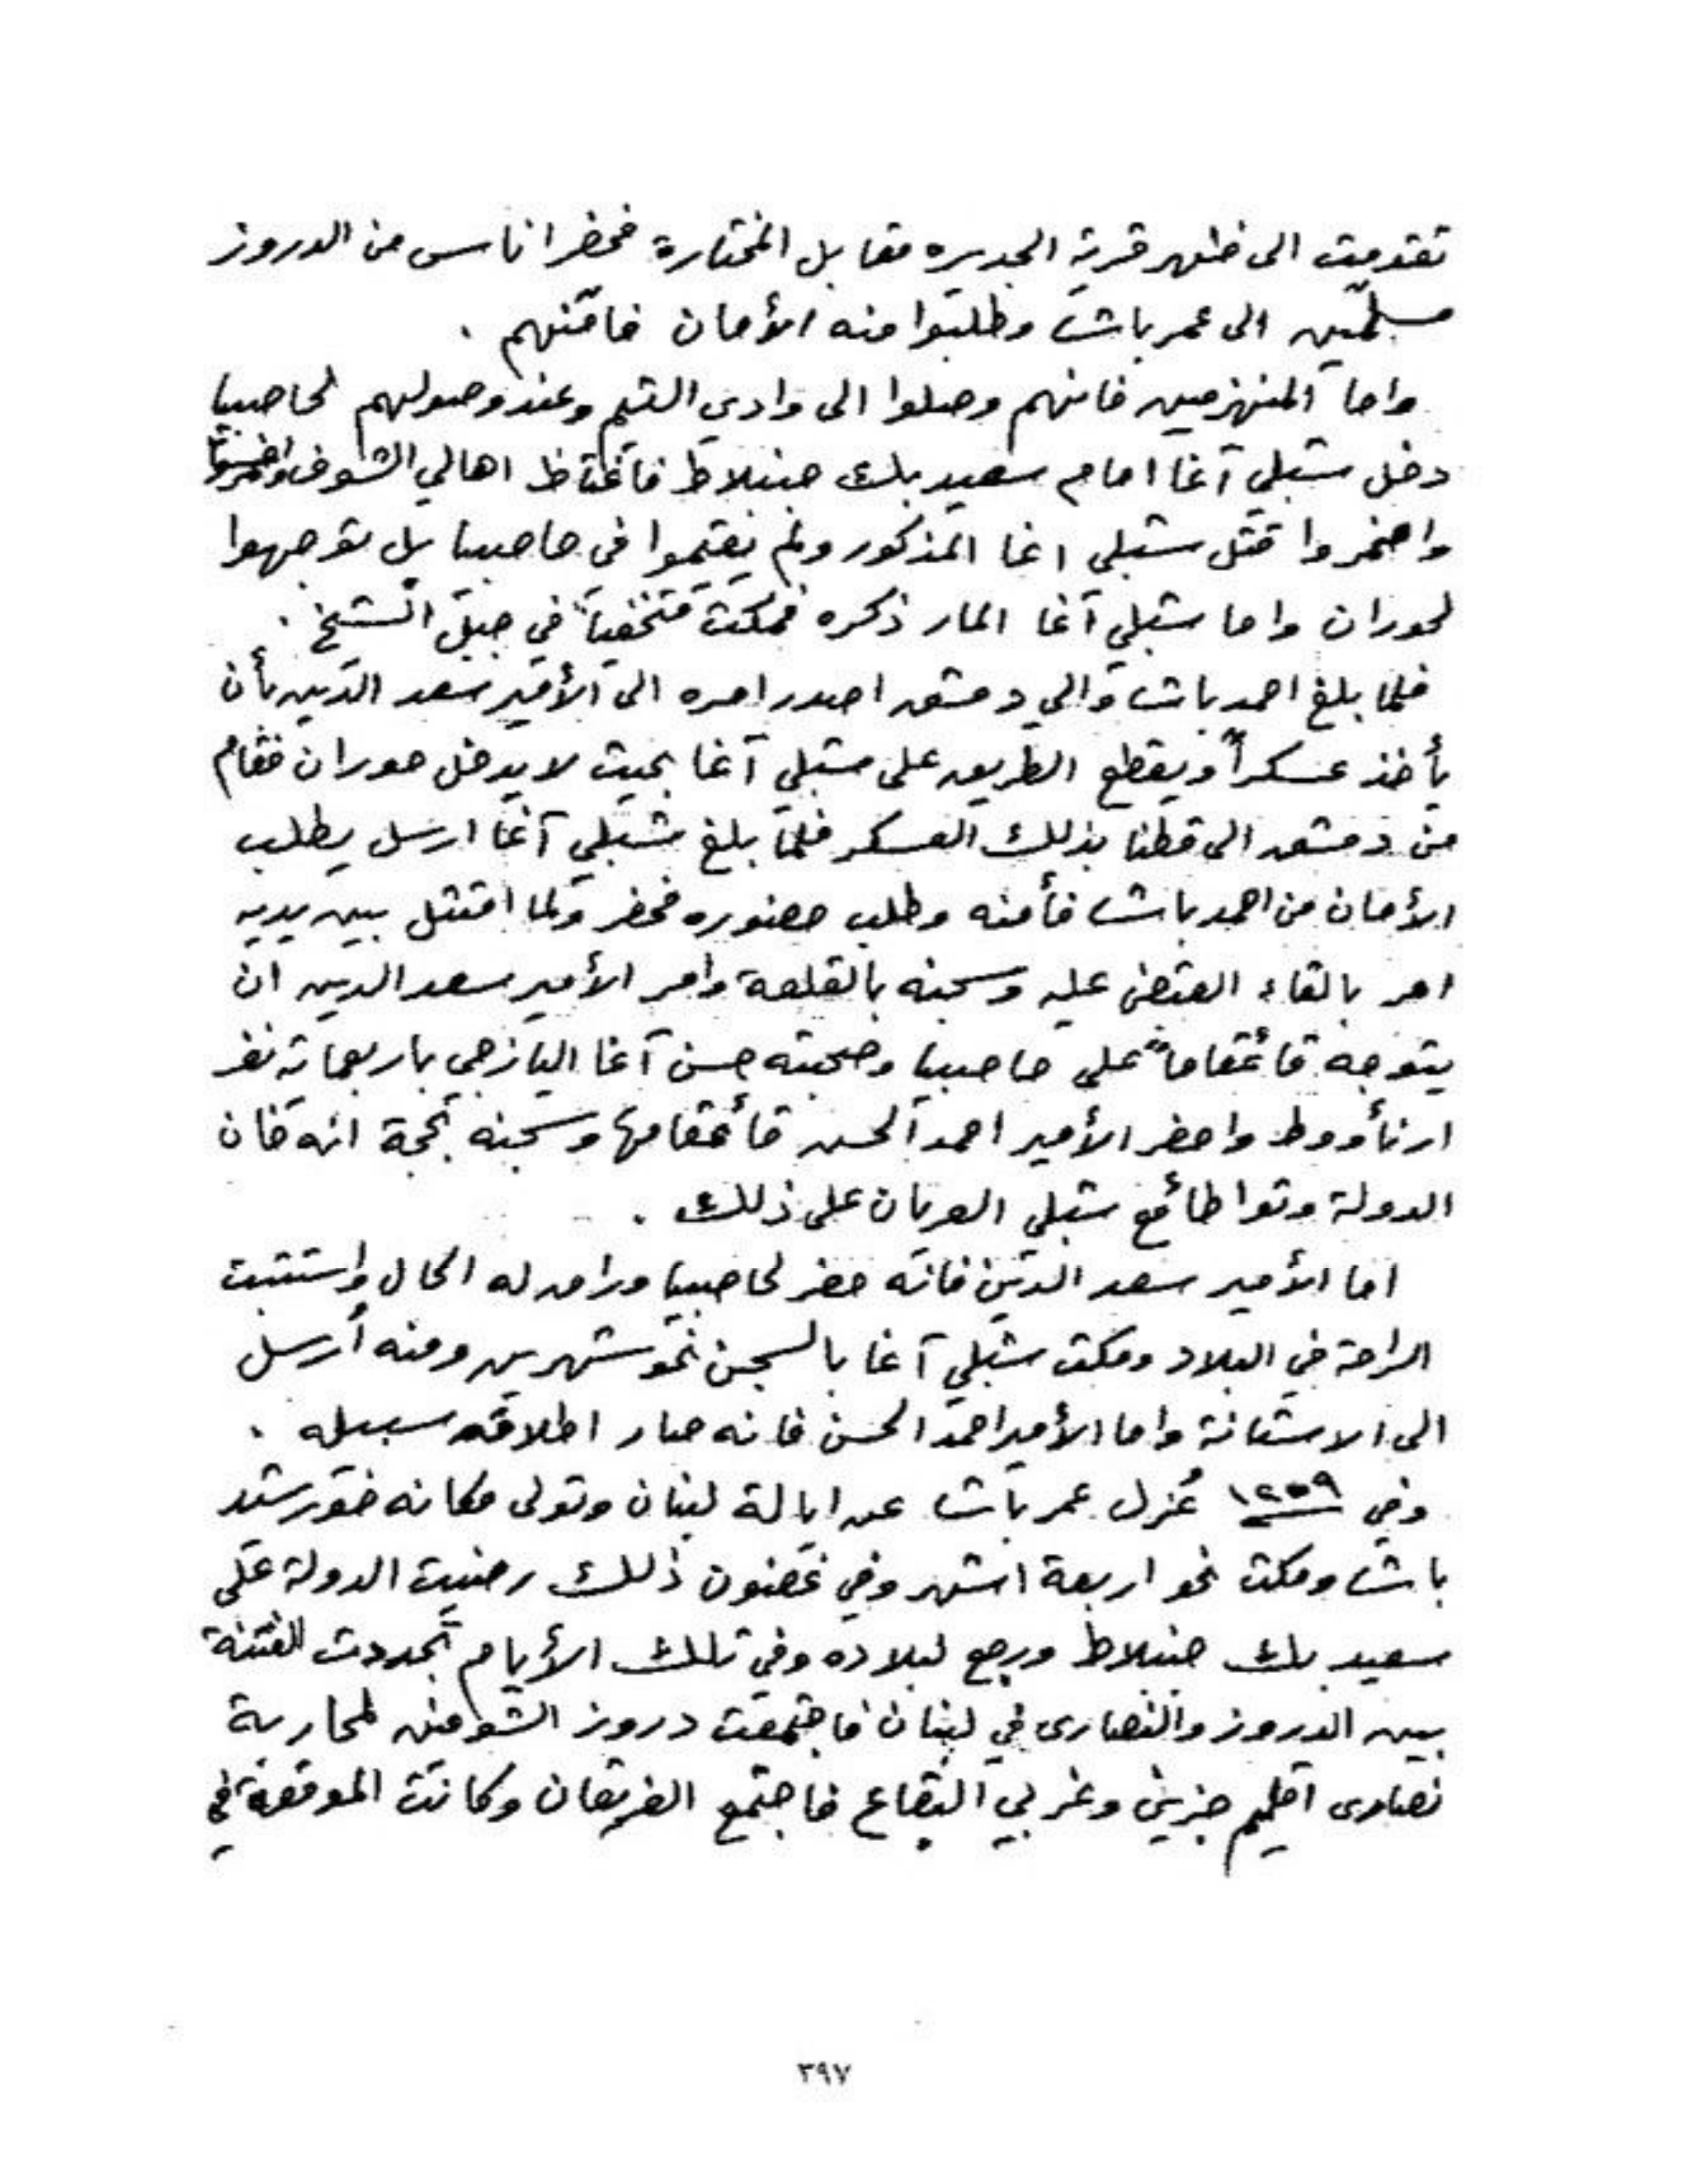 تقدمت الى ظهر قرية الجديده مقابل المختارة فحضر اناس من الدروز
مسلمين الى عمر باشا وطلبوا منه الأمان فامنهم .
واما المنهزمين فانهم وصلوا الى وادي التيم وعند وصولهم لحاصبيا
دخل شبلي آغا امام سعيد بك جنبلاط فاغتاظ اهالي الشوف
واضمروا قتل شبلي اغا المذكور ولم يقيموا في حاصبيا بل توجهوا
لحوران واما شبلي آغا المار ذكره فمكث متخفياً في جبل الشيخ .
فلما بلغ احمد باشا والي دمشق اصدر امره الى الأمير سعد الدين بأن
يأخذ عسكراً ويقطع الطريق على شبلي آغا بحيث لا يدخل حوران فقام
من دمشق الى قطنا بذلك العسكر فلما بلغ شبلي آغا ارسل يطلب
الأمان من احمد باشا فأمنه وطلب حضوره فحضر ولما امتثل بين يديه
امر بالقاء القبض عليه وسجنه بالقلعة وامر الأمير سعد الدين ان
يتوجه قائمقاماً على حاصبيا وصحبته حسن آغا اليازجي باربعماية نفر
ارنأووط واحضر الأمير احمد الحسن قائمقامها وسجنه بحجة انه خان
الدولة وتواطأ مع شبلي العريان على ذلك .
اما الأمير سعد الدين فانه حضر لحاصبيا وراق له الحال واستتبت
الراحة في البلاد ومكث شبلي آغا بالسجن نحو شهرين ومنه أرسل
الى الاستانة واما الأمير احمد الحسن فانه صار اطلاق سبيله .
وفي ١٢٥٩ عُزل عمر باشا عن ايالة لبنان وتولى مكانه خورشد
باشا ومكث نحو اربعة اشهر وفي غضون ذلك رضيت الدولة على
سعيد بك جنبلاط ورجع لبلاده وفي تلك الأيام تجددت الفتنة
بين الدروز والنصارى في لبنان فاجتمعت دروز الشوف لمحاربة
نصارى اقليم جزين وغربي البقاع فاجتمع الفريقان وكانت الموقعة في
٣٩٧